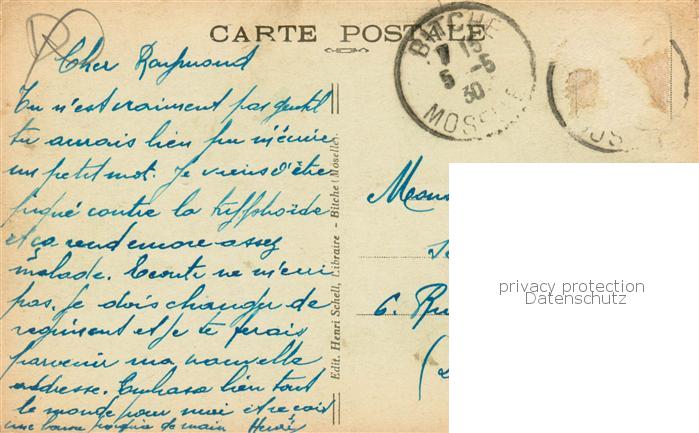 CARTE POSTALE
BITCHE
7 15
5 -5
30
MOSELLE
Cher Raymond
Tu n'est vraiment pas gentil
tu aurais bien pu m'écrire
un petit mot. Je viens d'être
piqué contre la typhoïde
et ça rend encore assez
malade. Ecoute ne m'écri
pas. Je dois changer de
regiment et je te ferais
parvenir ma nouvelle
adresse. Embrasse bien tout
le monde pour moi et reçois
une bonne poignée de main Henri
Edit. Henri Schell, Libraire - Bitche (Moselle).
6. Ru
privacy protection
Datenschutz